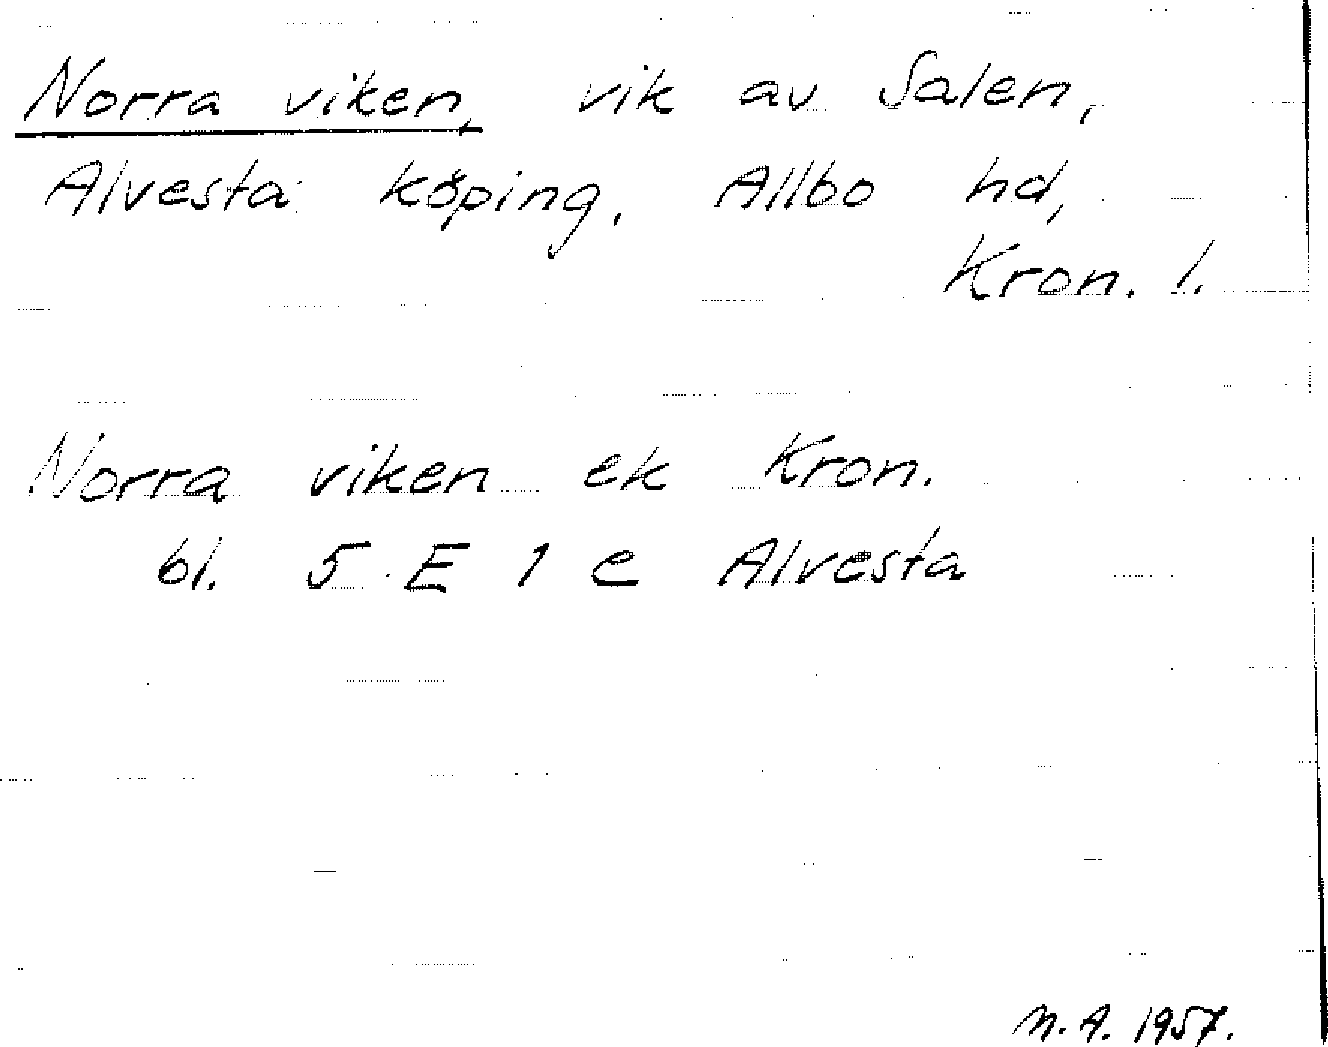 Norra viken, vik av Salen,
Alvesta köping, Allbo hd,
Kron. l.
Norra viken ek Kron.
bl. 5 E 1 e Alvesta
M.A. 1957.